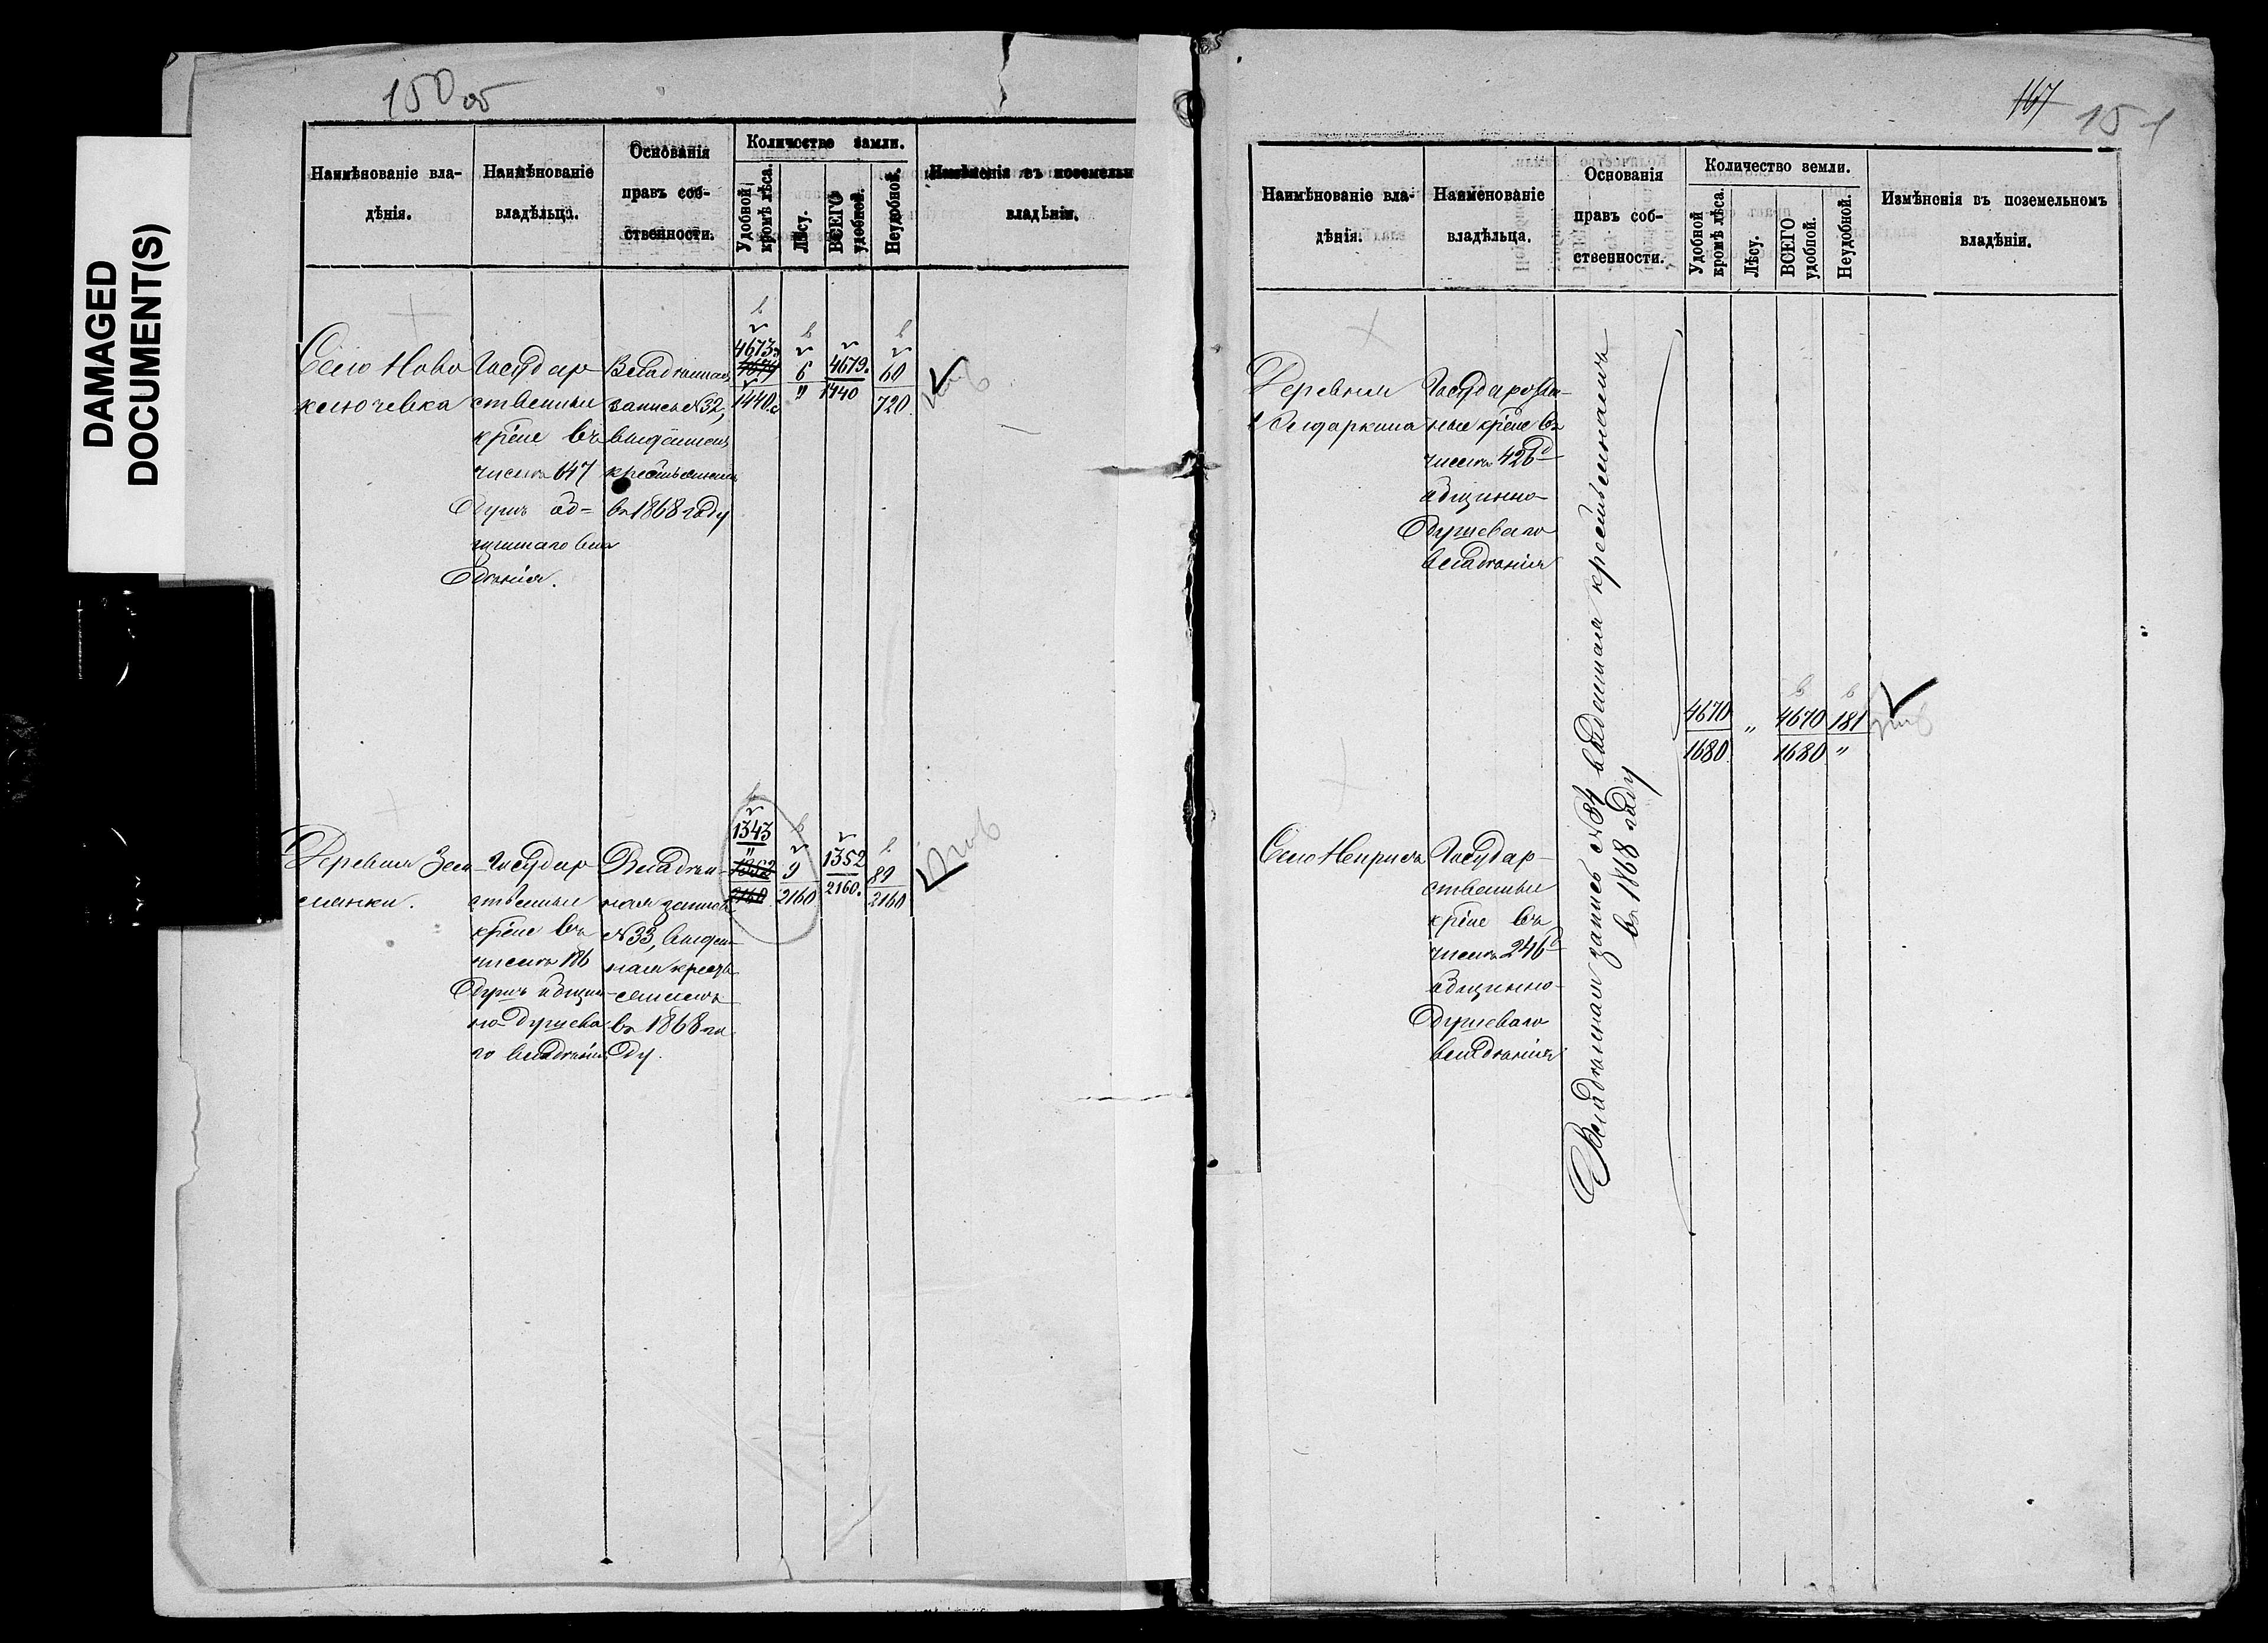 DAMAGED
DOCUMENT(S)
150 об
Наимѣнованіе вла-
дѣнія.
Наимѣнованіе
владѣльца.
Основанія
правъ соб-
ственности.
Количество земли.
Удобной
кромѣ лѣса.
Лѣсу.
ВСЕГО
удобной.
Неудобной.
Измѣненія въ поземельн
владѣніи.
Село Ново
ключевка
Государ
ственные
кр̃не въ
числѣ 647
душъ об=
щиннаго вла
дѣнія.
Владѣнная
запись №32,
выданная
крестьянамъ
въ 1868 году
4673
4679
1440
6
"
4679.
1440
60
720
Деревня Зем
лянки.
Государ
ственные
кр̃не въ
числѣ 186
душъ общин-
но-душева
го владѣнія
Владѣн-
ная запись
№33, выдан-
ная кресть
янамъ
въ 1868 го
ду.
1343
"
1352
2160
9
2160
1352
2160.
89
2160
167
151
Наимѣнованіе вла-
дѣнія.
Наименованіе
владѣльца.
Основанія
правъ соб-
ственности.
Количество земли.
Удобной
кромѣ лѣса.
Лѣсу.
ВСЕГО
удобной.
Неудобной.
Измѣненія въ поземельномъ
владѣніи.
Деревня
Государствен-
ные кр̃не въ
числѣ 426 д
общинно-
душеваго
владѣнія
Владѣнная запись №34 выданная крестьянамъ
въ 1868 году
4670
1680
"
4670
1680
181
"
Село
Государ-
ственные
кр̃не въ
числѣ 246 д
общинно-
душеваго
владѣнія